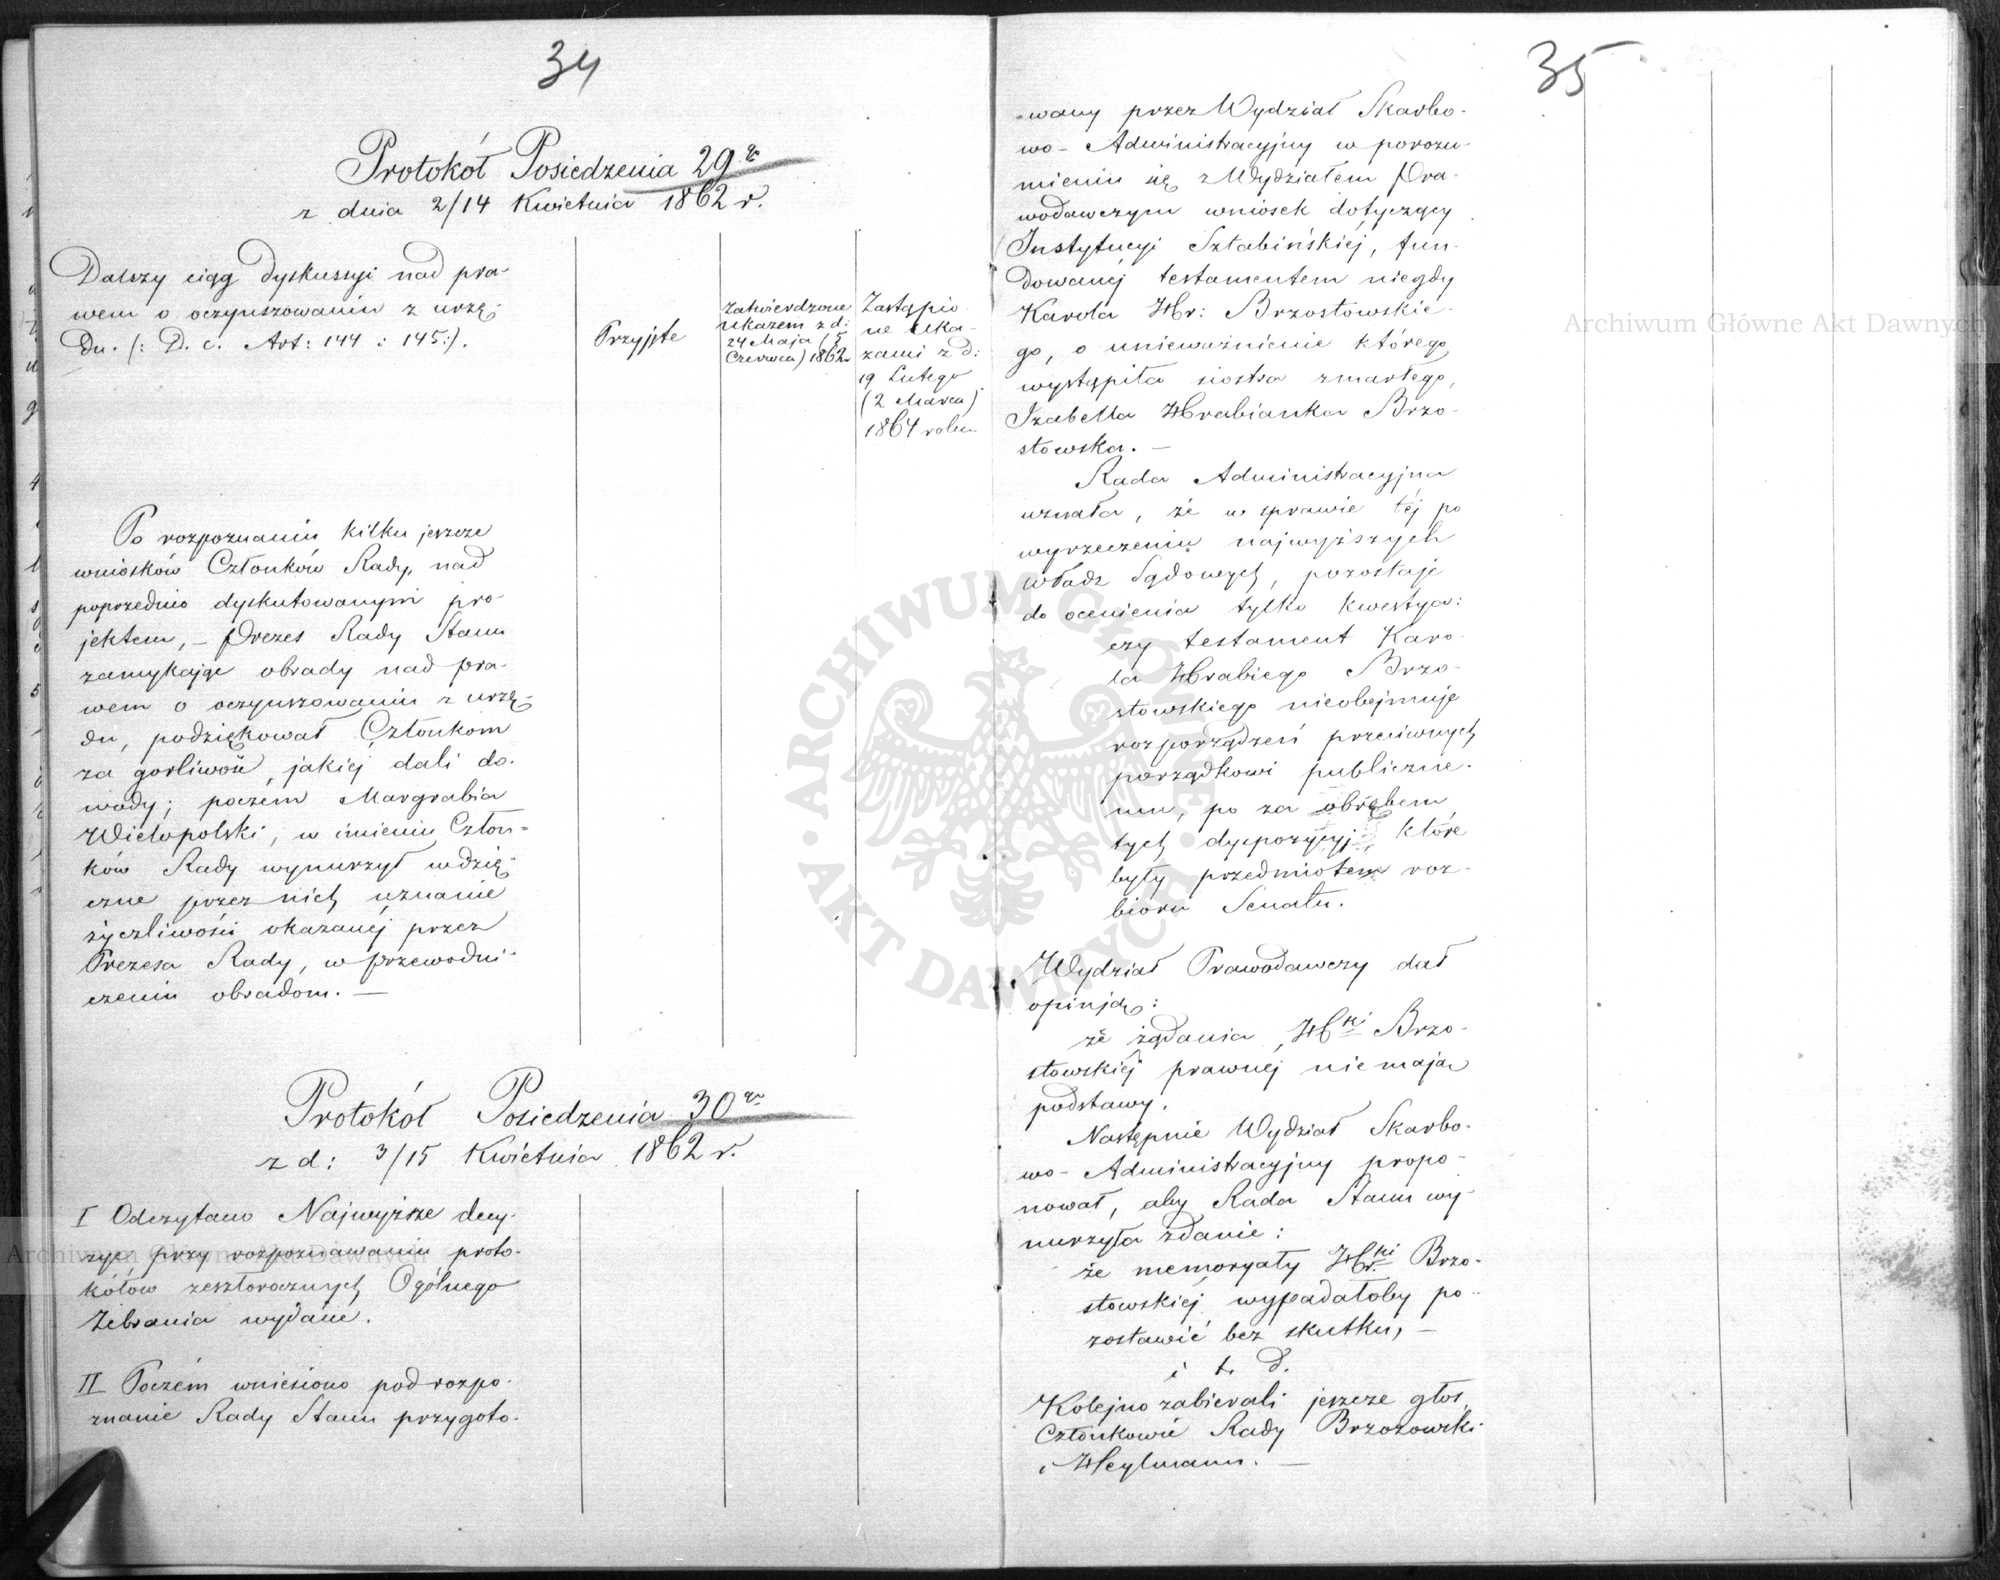 34
Protokół Posiedzenia 29go
z dnia 2/14 Kwietnia 1862 r.
Dalszy ciąg dyskussyi nad pra-
wem o oczynszowaniu z urzę-
du. (: D. c. Art: 144 i 145:).
Przyjęte
Zatwierdzone
ukazem z d:
24 Maja (5
Czerwca) 1862 r
Zastąpio
ne uka-
zami z d:
19 Lutego
(2 Marca)
1864 roku
Po rozpoznaniu kilku jeszcze
wniosków Członków Rady, nad
poprzednio dyskutowanym pro-
jektem, – Prezes Rady Stanu
zamykając obrady nad pra-
wem o oczynszowaniu z urzę-
du, podziękował Członkom
za gorliwość, jakiej dali do-
wody; poczém Margrabia
Wielopolski, w imieniu Człon-
ków Rady wynurzył wdzię-
czne przez nich uznanie
życzliwości okazanéj przez
Prezesa Rady, w przewodni-
czeniu obradom. —
Protokół Posiedzenia 30go
z d: 3/15 Kwietnia 1862 r.
I Odczytano Najwyższe decy-
zye przy rozpoznawaniu proto-
kółów zeszłorocznych Ogólnego
Zebrania wydane.
II Poczém wniesiono pod rozpo-
znanie Rady Stanu przygoto-
35
-wany przez Wydział Skarbo-
wo-Administracyjny w porozu-
mieniu się z Wydziałem Pra-
wodawczym wniosek dotyczący
Instytucyi Sztabińskiéj, fun-
dowanéj testamentem niegdy
Karola Hr: Brzostowskie-
go, o unieważnienie którego
wystąpiła siostra zmarłego,
Izabella Hrabianka Brzo-
stowska. —
Rada Administracyjna
uznała, że w sprawie téj po
wyrzeczeniu najwyższych
władz Sądowych, pozostaje
do ocenienia tylko kwestya:
czy testament Karo-
la Hrabiego Brzo-
stowskiego nieobejmuje
rozporządzeń przeciwnych
porządkowi publiczne-
mu, po za obrębem
tych dyspozycyj, które
były przedmiotem roz-
bioru Senatu.
Wydział Prawodawczy dał
opinją:
że żądania Hki Brzo-
stowskiéj prawnej nie mają
podstawy.
Następnie Wydział Skarbo-
wo-Administracyjny propo-
nował, aby Rada Stanu wy-
nurzyła zdanie:
że memoryały Hrki Brzo-
stowskiéj wypadałoby po-
zostawić bez skutku, —
i t. d.
Kolejno zabierali jeszcze głos
Członkowie Rady Brzozowski
i Heylmann. —
Archiwum Główne Akt Dawnych
Archiwum Główne Akt Dawnych
ARCHIWUM GŁÓWNE · AKT DAWNYCH ·